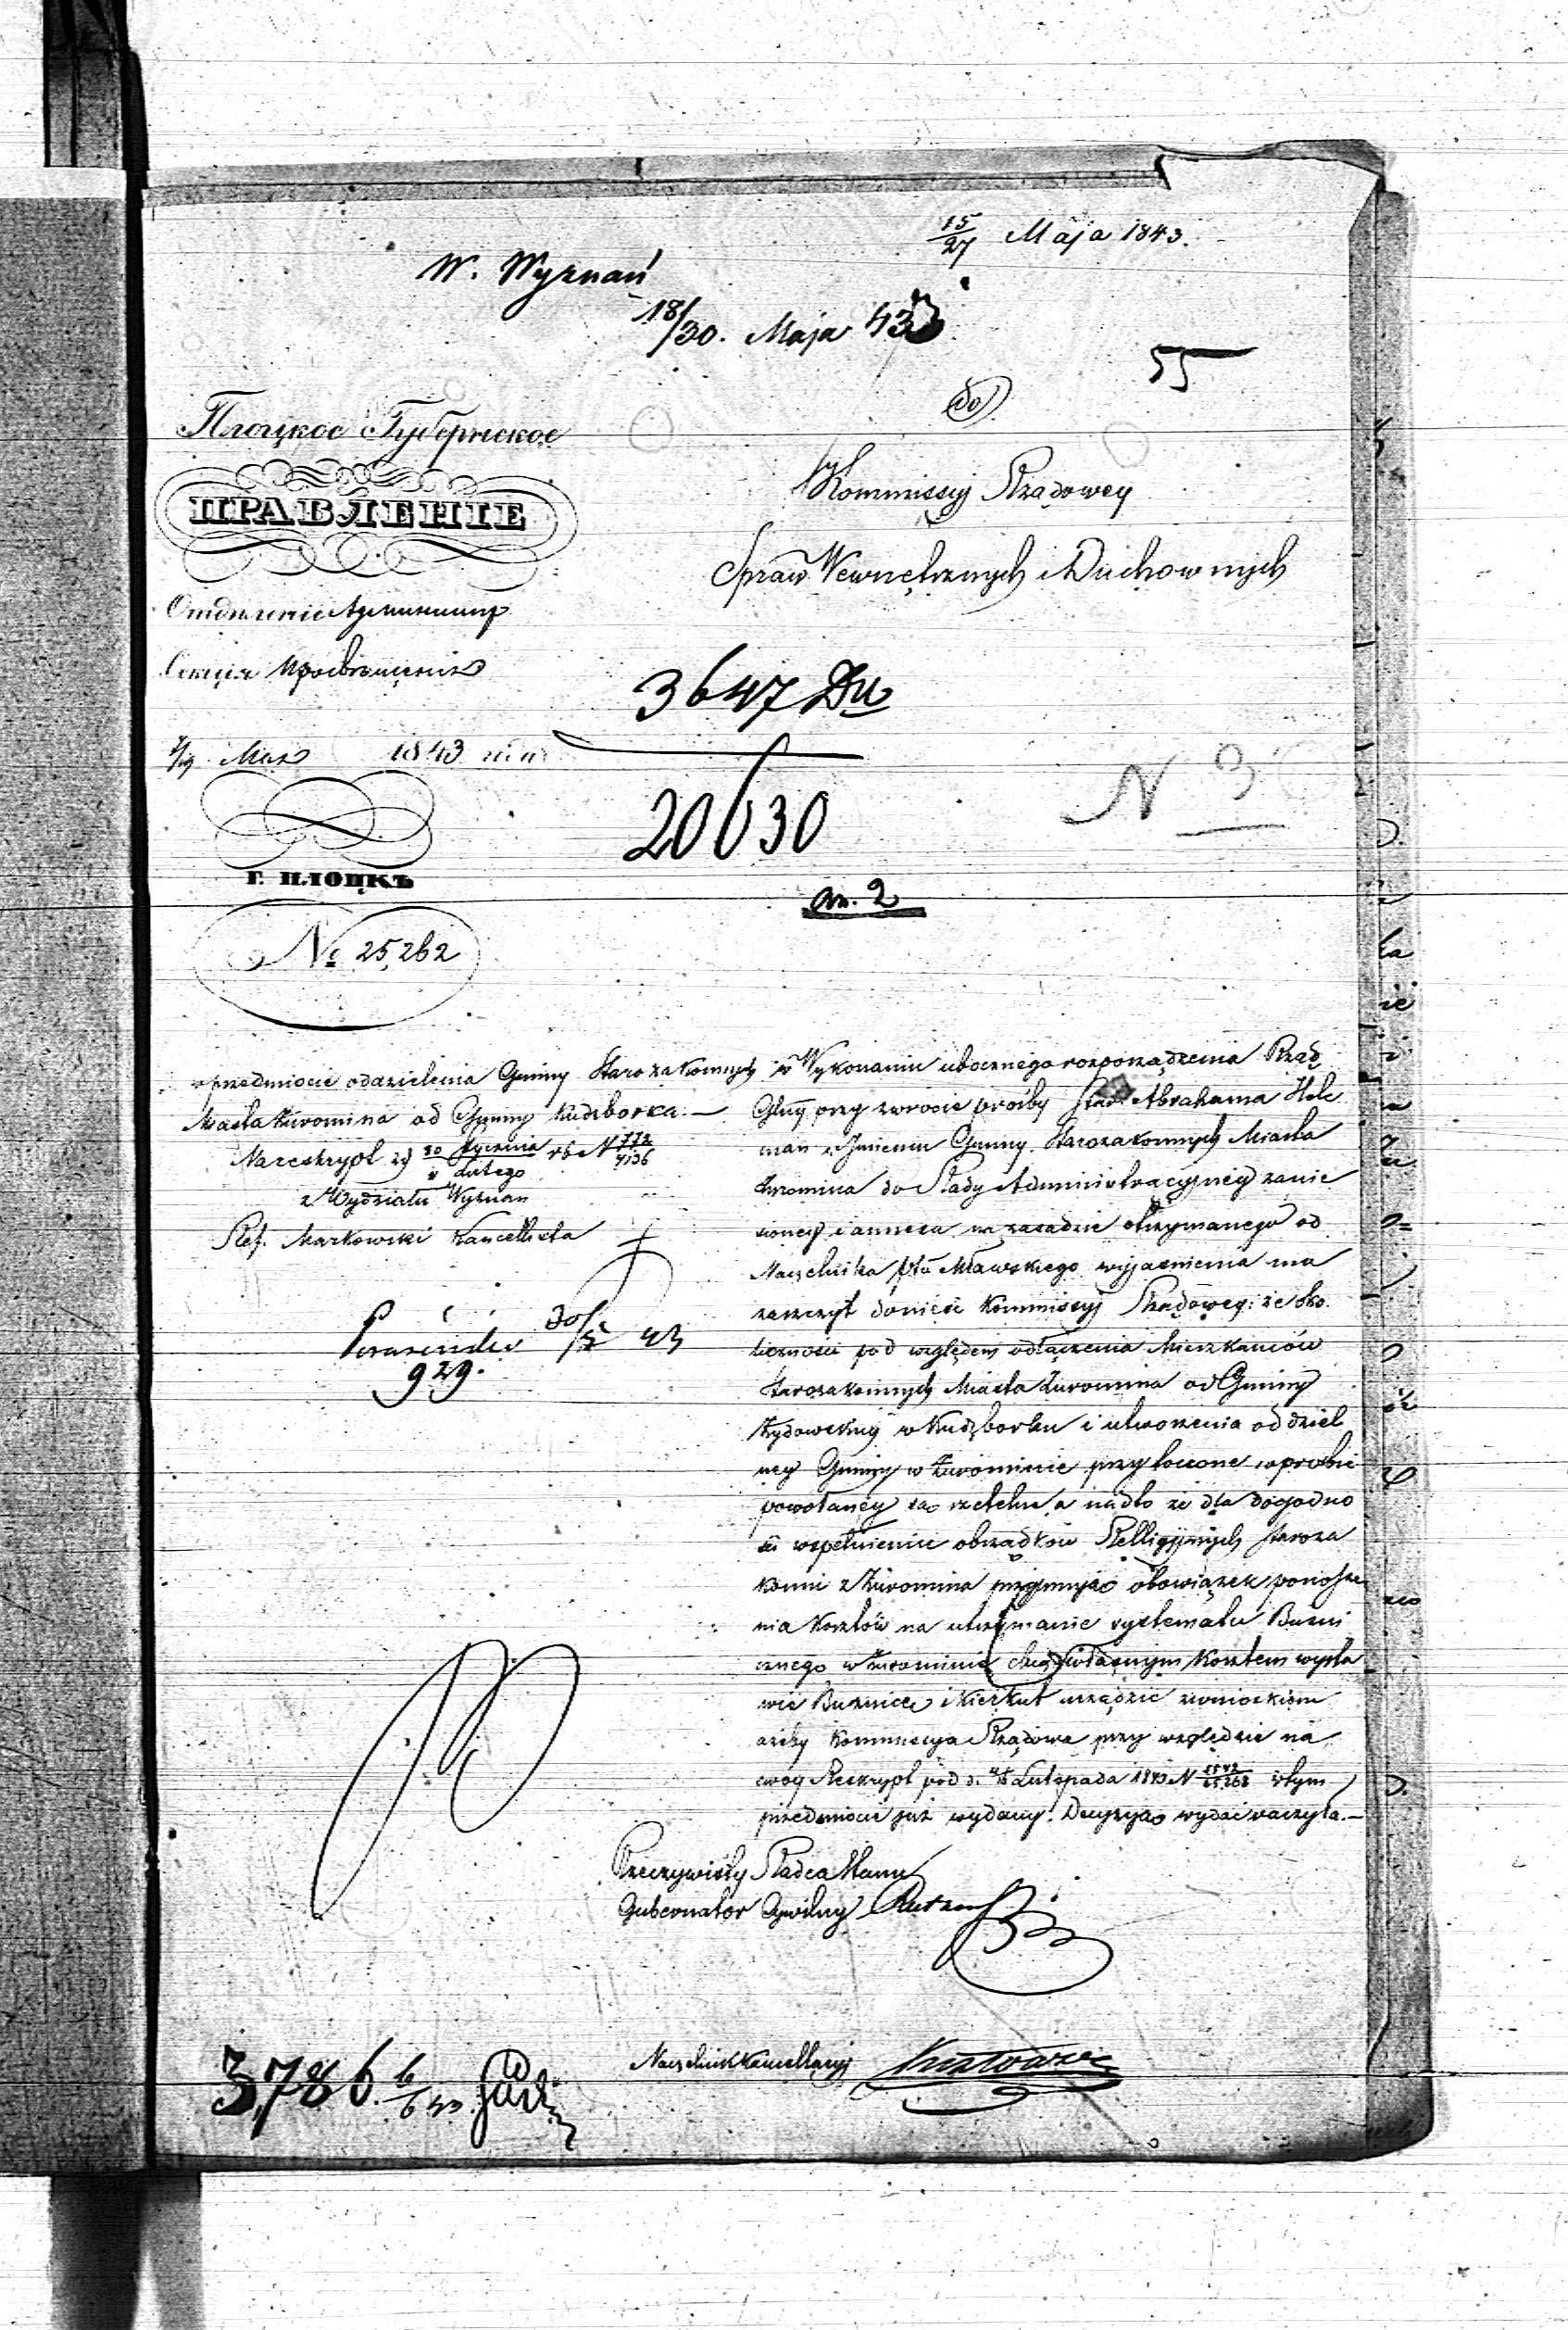 15/27 Maja 1843.
W. Wyznań
18/30. Maja 43
55
do
Kommissyi Rządowey
Spraw Wewnętrznych i Duchownych
Плоцкое Губернское
ПРАВЛЕНІЕ
Отдѣленіе Админист
Секція Просвѣщенія
3647 Du
7/19 Мая 1843 года
20630
N 3
Г. ПЛОЦКЪ
an. 2
№ 25,262
o przedmiocie oddzielenia Gminy Starozakonnych
Miasta Żuromina od Gminy Kuczborka.—
Na reskrypt z d 30 Stycznia / 11 Lutego rb N 772/4136
z Wydziału Wyznań
Ref. Markowski Kancellista
30/5 43
929.
w Wykonaniu ubocznego rozporządzenia Rząd
Głny przy zwrocie prośby Star. Abrahama Hel
man w Imieniu Gminy Starozakonnych Miasta
Żuromina do Rady Administracyjney zanie
sioney i annexa na zasadzie otrzymanego od
Naczelnika Ptu Mławskiego wyjaśnienia ma
zaszczyt donieść Kommissyi Rządowey: że oko
liczności pod względem odłączenia Mieszkańców
Starozakonnych Miasta Żuromina od Gminy
Żydowskiey w Kuczborku i utworzenia oddziel
ney Gminy w Żurominie przytoczone w prośbie
powołaney są rzetelne, a nadto że dla dogodno
ści w spełnieniu obrządków Relligijnych Staroza
konni z Żuromina przyjmując obowiązek ponosze
nia Kosztów na utrzymanie systematu Bużni
cznego w Żurominie chcą własnym Kosztem wysta
wić Bużnicę i Kierkut urządzić z wnioskiem
ażeby Kommissya Rządowa przy względzie na
swoy Reskrypt pod d. Listopada 184 N w tym
przedmiocie już wydany. Decyzyą wydać raczyła.—
Rzeczywisty Radca Stanu
Gubernator Cywilny
Naczelnik Kancellaryi
3,786. 6/6 43